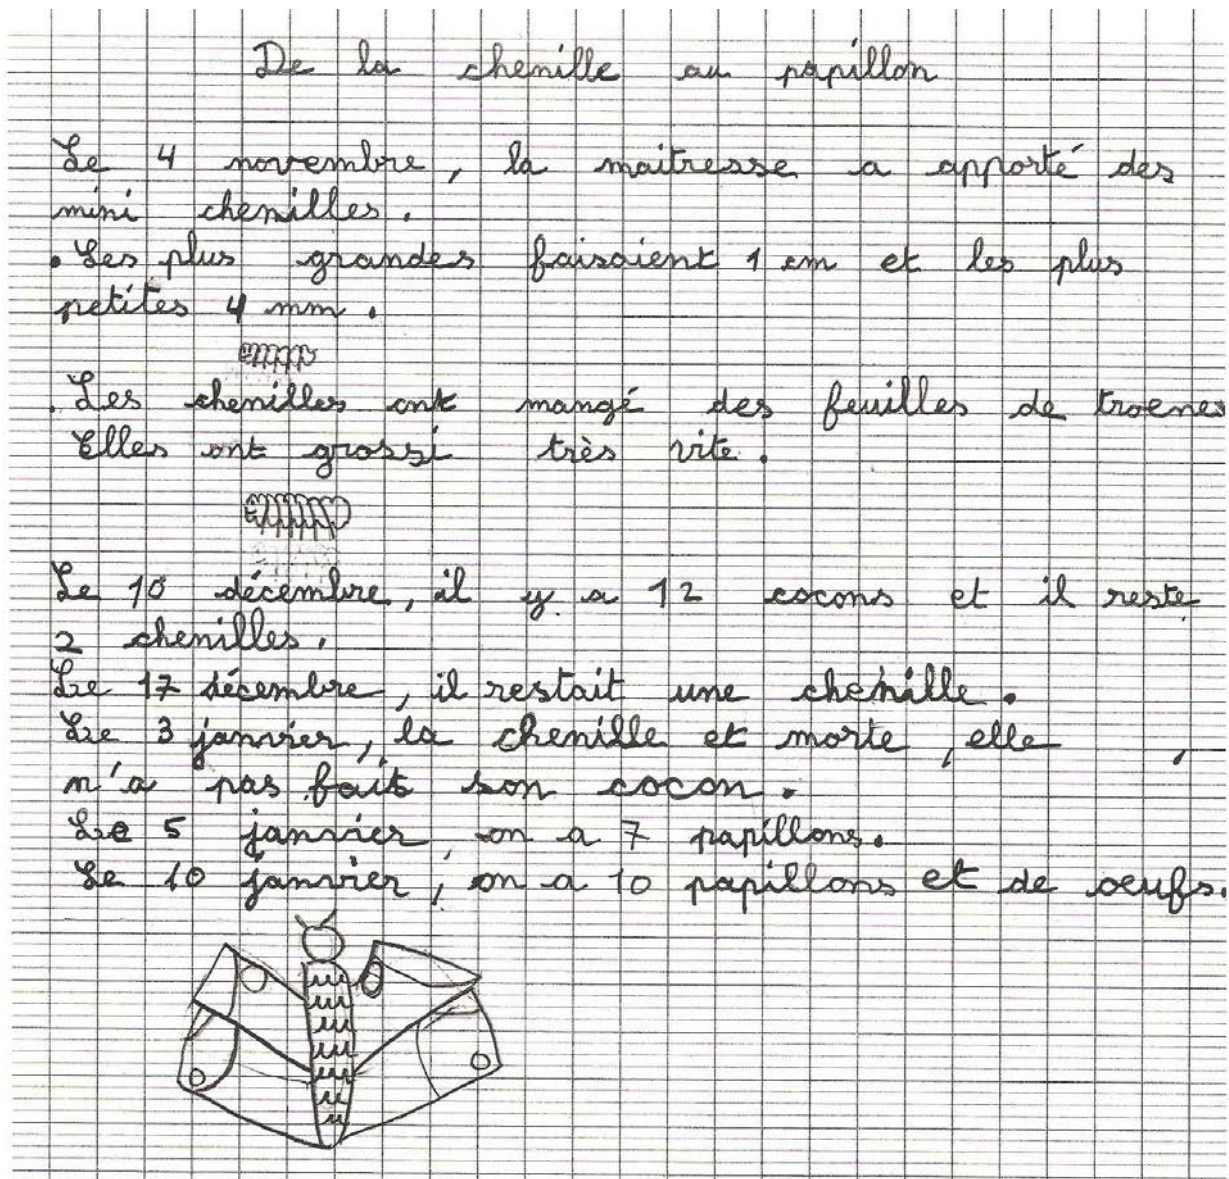 De la chenille au papillon
Le 4 novembre, la maitresse a apporté des
mini chenilles.
. Les plus grandes faisaient 1 cm et les plus
petites 4 mm.
. Les chenilles ont mangé des feuilles de troenes
Elles ont grossi très vite.
Le 10 décembre, il y a 12 cocons et il reste
2 chenilles.
Le 17 décembre, il restait une chenille.
Le 3 janvier, la chenille et morte, elle
n'a pas fait son cocon.
Le 5 janvier, on a 7 papillons.
Le 10 janvier, on a 10 papillons et de oeufs.